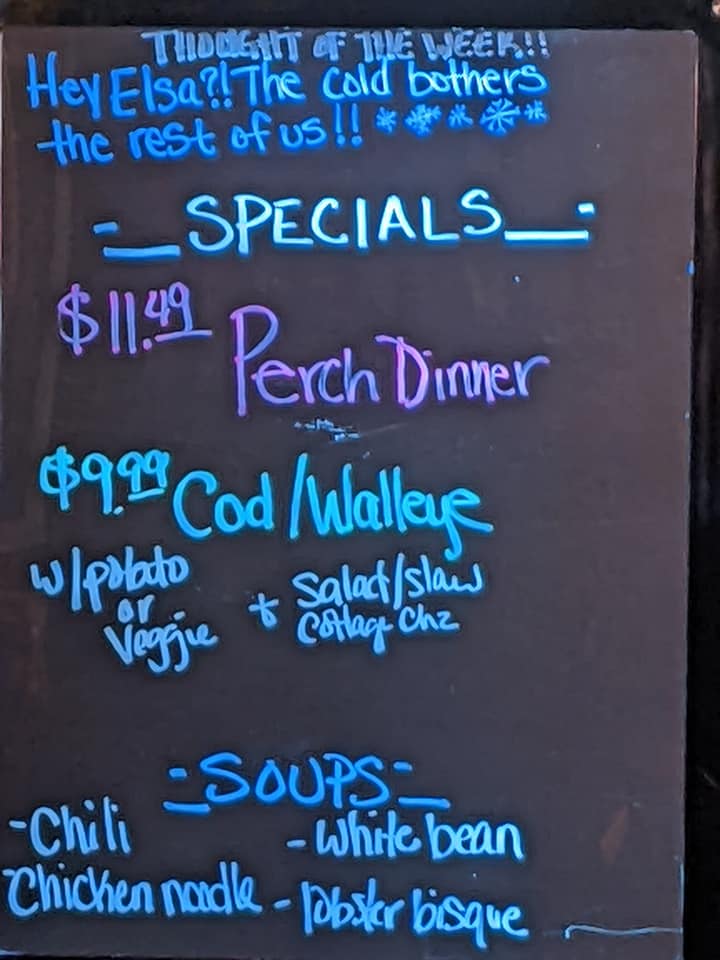 THOUGHT OF THE WEEK!!
Hey Elsa?! The cold bothers
the rest of us!!
SPECIALS
$11.49 Perch Dinner
$9.99 Cod/Walleye
w/potato
or
Veggie
+ Salad/slaw
Cottage Chz
SOUPS
-Chili
-White bean
-Chicken noodle
-lobster bisque